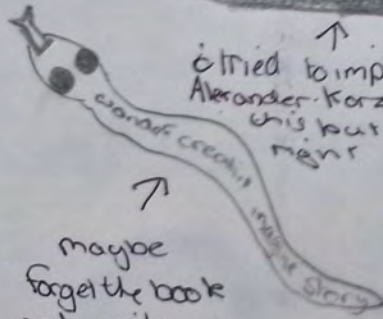 i tried to imp
Alexander. Korz
this but
right
create
imagine story
maybe
forget the book